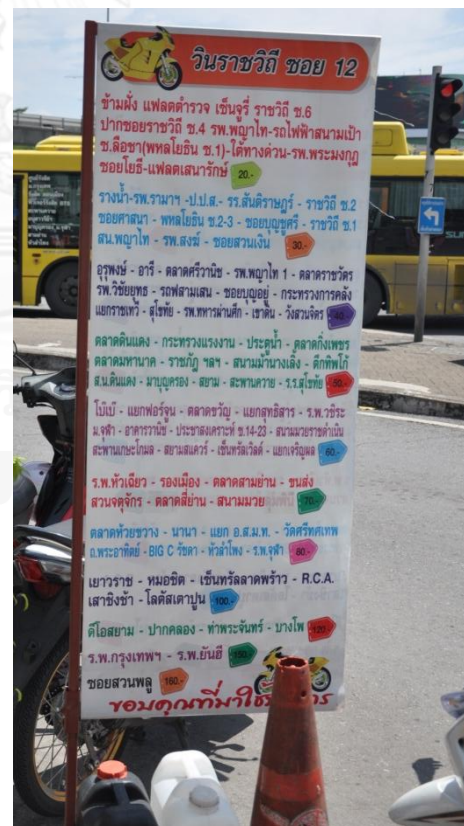 วินราชวิถี ซอย 12
ข้ามฝั่ง แฟลตตำรวจ เซ็นจูรี่ ราชวิถี ซ.6
ปากซอยราชวิถี ซ.4 รพ.พญาไท-รถไฟฟ้าสนามเป้า
ซ.ลือชา(พหลโยธิน ซ.1)-ใต้ทางด่วน-รพ.พระมงกุฎ
ซอยโยธี-แฟลตเสนารักษ์ 20.-
รางน้ำ-รพ.รามาฯ -ป.ป.ส.- รร.สันติราษฎร์ - ราชวิถี ซ.2
ซอยศาสนา - พหลโยธิน ซ.2-3 - ซอยบุญชูศรี - ราชวิถี ซ.1
สน.พญาไท - รพ.สงฆ์ - ซอยสวนเงิน 30.-
อุรุพงษ์ - อารี - ตลาดศรีวานิช - รพ.พญาไท 1 - ตลาดราชวัตร
รพ.วิชัยยุทธ - รถฟสามเสน - ซอยบุญอยู่ - กระทรวงการคลัง
แยกราชเทวี - สุโขทัย - รพ.ทหารผ่านศึก - เขาดิน - วังสวนจิตร 40.-
ตลาดดินแดง - กระทรวงแรงงาน - ประตูน้ำ - ตลาดกิ่งเพชร
ตลาดมหานาค - ราชภัฏ ฯลฯ - สนามม้านางเลิ้ง - ตึกทิพโก้
ส.น.ดินแดง - มาบุญครอง - สยาม - สะพานควาย - ร.ร.สุโขทัย 50.-
โบ๊เบ๊ - แยกฟอร์จูน - ตลาดขวัญ - แยกสุทธิสาร - ร.พ.วชิระ
ม.จุฬา - อาคารวานิช - ประชาสงเคราะห์ ซ.14-23 - สนามมวยราชดำเนิน
สะพานเกษะโกมล - สยามสแควร์ - เซ็นทรัลเวิลด์ - แยกเจริญผล 60.-
ร.พ.หัวเฉียว - รองเมือง - ตลาดสามย่าน - ขนส่ง
สวนจตุจักร - ตลาดสี่ย่าน - สนามมวย 70.-
ตลาดห้วยขวาง - นานา - แยก อ.ส.ม.ท. - วัดศรีทศเทพ
ถ.พระอาทิตย์ - BIG C รัชดา - หัวลำโพง - ร.พ.จุฬา 80.-
เยาวราช - หมอชิต - เซ็นทรัลลาดพร้าว - R.C.A.
เสาชิงช้า - โลตัสเตาปูน 100.-
ดิโอสยาม - ปากคลอง - ท่าพระจันทร์ - บางโพ 120.-
ร.พ.กรุงเทพฯ - ร.พ.ยันฮี 150.-
ซอยสวนพลู 160.-
ขอบคุณที่มาใช้